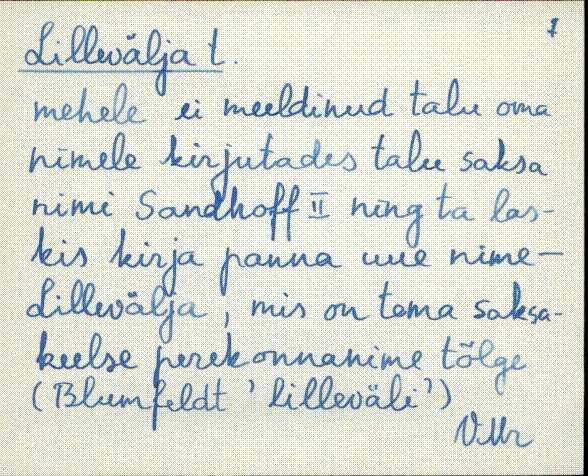 7
Lillevälja t.
mehele ei meeldinud talu oma
nimele kirjutades talu saksa
nimi Sandhoff II ning ta las-
kis kirja panna uue nime—
Lillevälja, mis on tema saksa-
keelse perekonnanime tõlge
(Blumfeldt 'lilleväli')